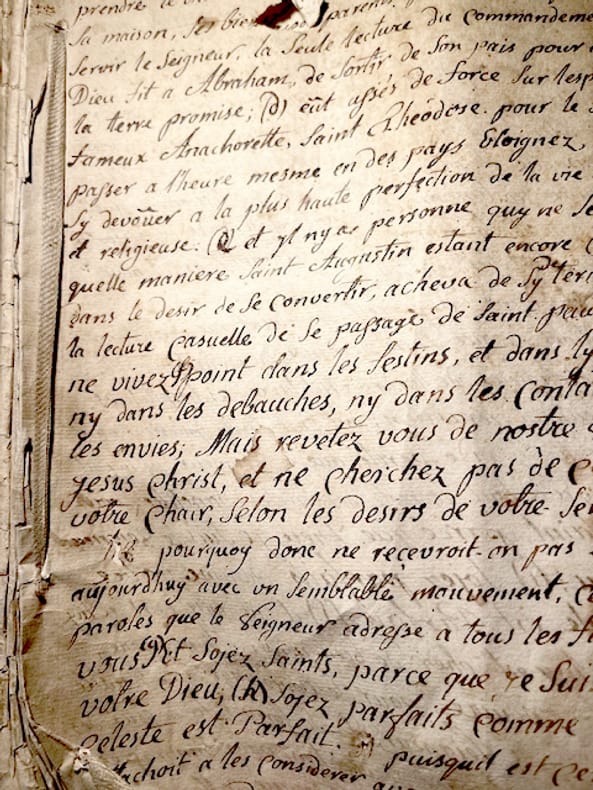 prendre le
sa maison, ses biens, ses parens,
servir le Seigneur, la seule lecture du commandeme
Dieu fit a Abraham, de sortir de son pais pour
la terre promise; (d) eût assés de force sur lesp
fameux Anachorette, Saint Théodose. pour le
passer a l'heure mesme en des pays Eloignez,
sy devoüer a la plus haute perfection de la vie
et religieuse: et yl ny a personne quy ne
quelle maniere Saint Augustin estant encore
dans le desir de se convertir, acheva de sy
la lecture casuelle de se passage de Saint pau
ne vivez point dans les festins, et dans ly
ny dans les debauches, ny dans les Conta
les envies; Mais revetez vous de nostre
jesus christ, et ne cherchez pas de
votre Chair, selon les desirs de votre sen
pourquoy donc ne reçevroit-on pas
aujourd'huy avec un semblable mouvement,
paroles que le Seigneur adresse a tous les
vous Dit Sojez Saints, parce que je Suis
votre Dieu, (h) Sojez parfaits comme
Celeste est Parfait.
tachoit a les considerer puisquil est ce